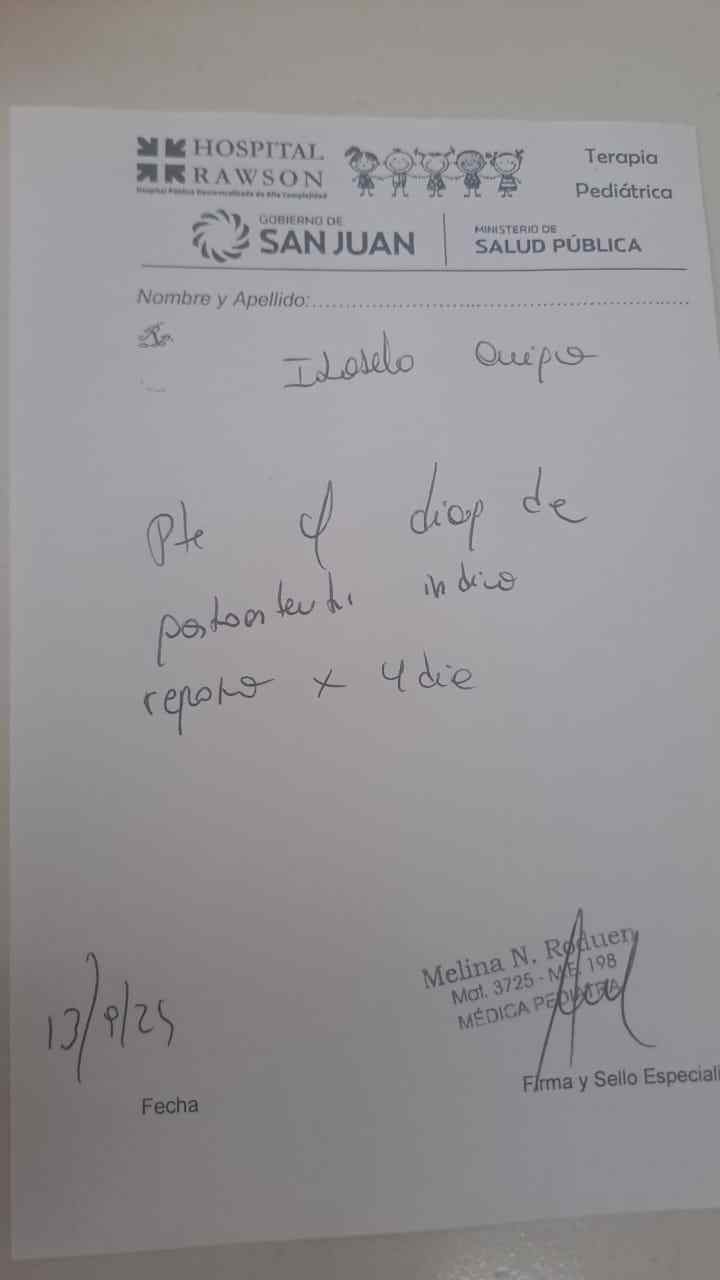 HOSPITAL
RAWSON
Hospital Público Descentralizado de Alta Complejidad
Terapia
Pediátrica
GOBIERNO DE
SAN JUAN
MINISTERIO DE
SALUD PÚBLICA
Nombre y Apellido:
Pte diag de
indico
reposo x 4 die
Melina N. Roduen
Mat. 3725 - M.E. 198
MÉDICA PEDIATRA
13/9/25
Fecha
Firma y Sello Especiali